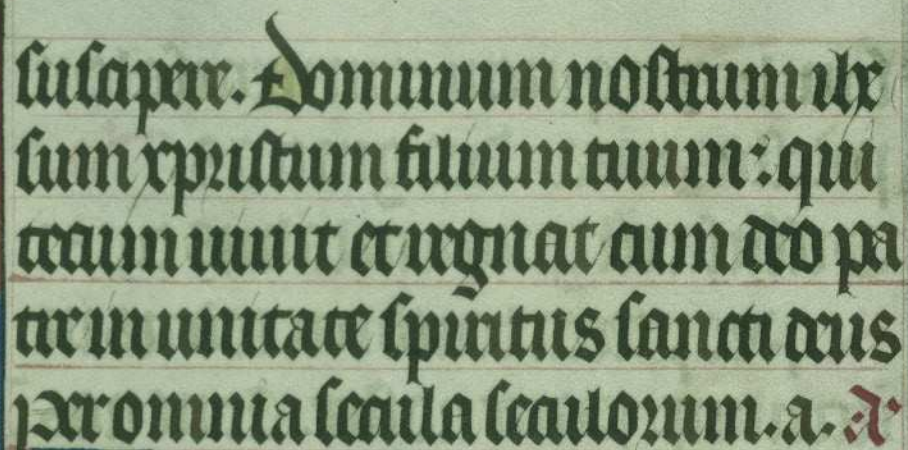 suscipere. Dominum nostrum ihe
sum xpristum filium tuum: qui
tecum uiuit et regnat cum deo pa
tre in unitate spiritus sancti deus
per omnia secula seculorum. a. A